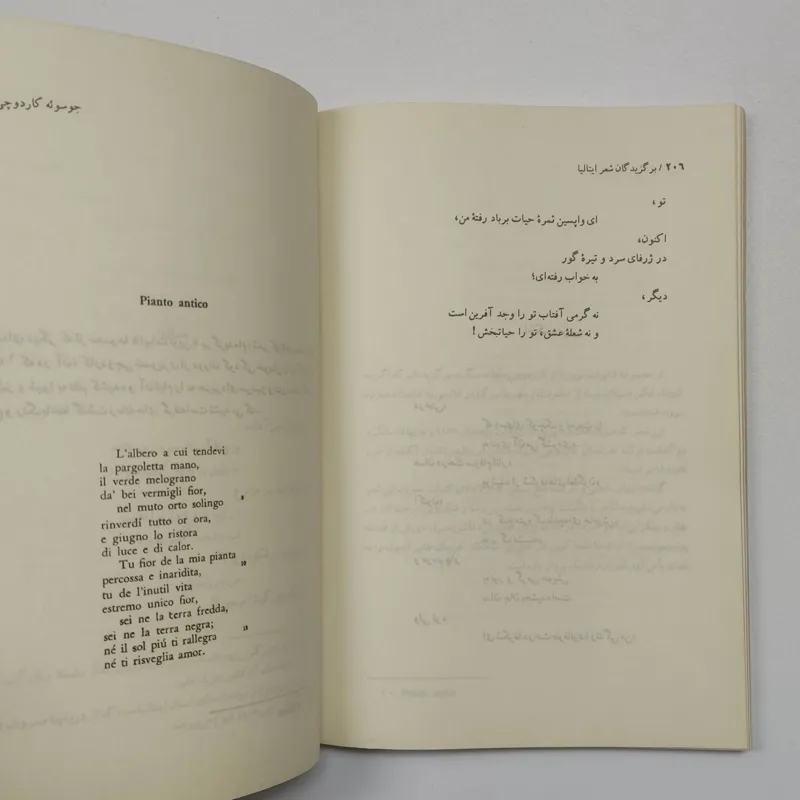 جوسوئه کاردوچی
Pianto antico
L'albero a cui tendevi
la pargoletta mano,
il verde melograno
da' bei vermigli fior,
nel muto orto solingo
rinverdí tutto or ora,
e giugno lo ristora
di luce e di calor.
Tu fior de la mia pianta
percossa e inaridita,
tu de l'inutil vita
estremo unico fior,
sei ne la terra fredda,
sei ne la terra negra;
né il sol piú ti rallegra
né ti risveglia amor.
۲۰۶ / برگزیدگان شعر ایتالیا
تو،
ای واپسین ثمرهٔ حیات برباد رفتهٔ من،
اکنون،
در ژرفای سرد و تیرهٔ گور
به خواب رفته‌ای؛
دیگر،
نه گرمی آفتاب تو را وجد آفرین است
و نه شعلهٔ عشق، تو را حیاتبخش!